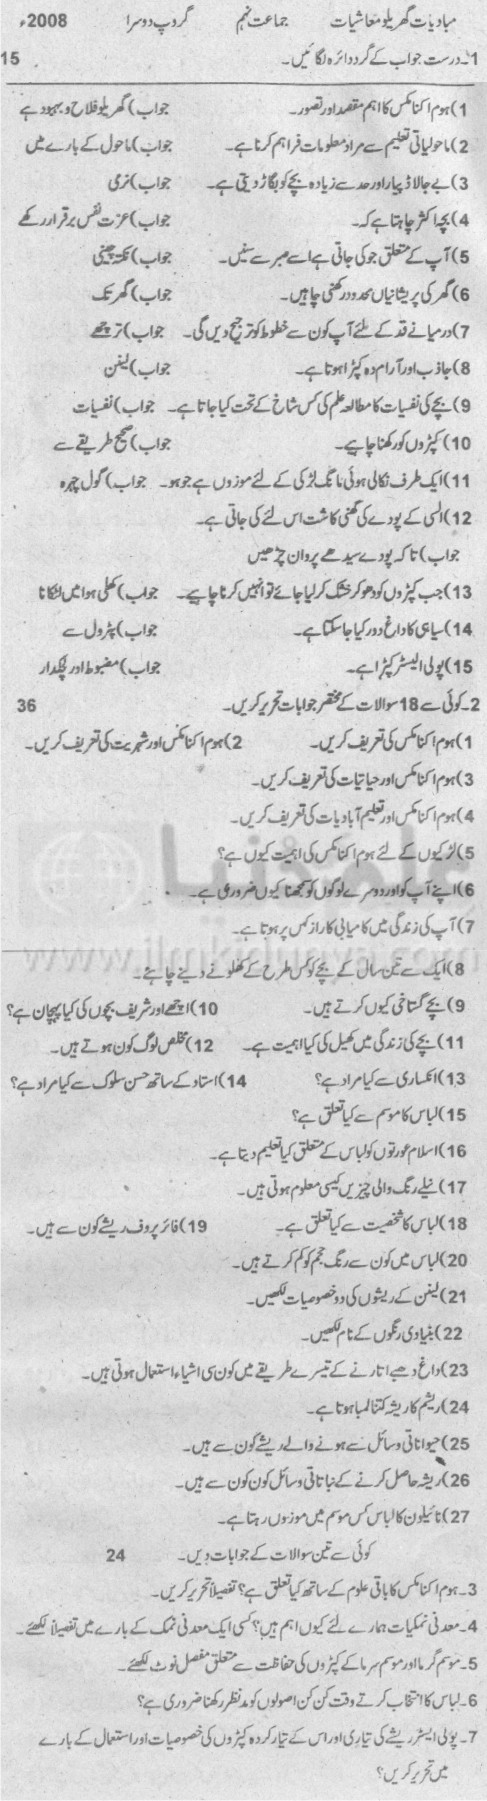 مبادیات گھریلو معاشیات جماعت نہم گروپ دوسرا 2008ء
1۔درست جواب کے گرد دائرہ لگائیں۔ 15
1)ہوم اکنامکس کا اہم مقصد اور تصور۔ جواب) گھریلو فلاح و بہبود ہے
2)ماحولیاتی تعلیم سے مراد معلومات فراہم کرنا ہے۔ جواب) ماحول کے بارے میں
3)بے جا لاڈ پیار اور حد سے زیادہ بچے کو بگاڑ دیتی ہے۔ جواب) نرمی
4)بچہ اکثر چاہتا ہے کہ۔ جواب) عزت نفس برقرار رکھے
5)آپ کے متعلق جو کی جاتی ہے اسے صبر سے سنیں۔ جواب) نکتہ چینی
6)گھر کی پریشانیاں محدود رکھنی چاہیں۔ جواب) گھر تک
7)درمیانے قد کے لئے آپ کون سے خطوط کو ترجیح دیں گی۔ جواب) ترچھے
8)جاذب اور آرام دہ کپڑا ہوتا ہے۔ جواب) لینن
9)بچے کی نفسیات کا مطالعہ علم کی کس شاخ کے تحت کیا جاتا ہے۔ جواب) نفسیات
10)کپڑوں کو رکھنا چاہیے۔ جواب) صحیح طریقے سے
11)ایک طرف نکالی ہوئی مانگ لڑکی کے لئے موزوں ہے جو ہو۔ جواب) گول چہرہ
12)السی کے پودے کی گھنی کاشت اس لئے کی جاتی ہے۔
جواب) تاکہ پودے سیدھے پروان چڑھیں
13)جب کپڑوں کو دھو کر خشک کر لیا جائے تو انہیں کرنا چاہیے۔ جواب) کھلی ہوا میں لٹکانا
14)سیاہی کا داغ دور کیا جا سکتا ہے۔ جواب) پٹرول سے
15)پولی ایسٹر کپڑا ہے۔ جواب) مضبوط اور لچکدار
2۔کوئی سے 18 سوالات کے مختصر جوابات تحریر کریں۔ 36
1)ہوم اکنامکس کی تعریف کریں۔ 2)ہوم اکنامکس اور شہریت کی تعریف کریں۔
3)ہوم اکنامکس اور حیاتیات کی تعریف کریں۔
4)ہوم اکنامکس اور تعلیم آبادیات کی تعریف کریں۔
5)لڑکیوں کے لئے ہوم اکنامکس کی اہمیت کیوں ہے؟
6)اپنے آپ کو اور دوسرے لوگوں کو سمجھنا کیوں ضروری ہے۔
7)آپ کی زندگی میں کامیابی کا راز کس پر ہوتا ہے۔
8)ایک سے تین سال کے بچے کو کس طرح کے کھلونے دینے چاہئے۔
9)بچے گستاخی کیوں کرتے ہیں۔ 10)اچھے اور شریف بچوں کی کیا پہچان ہے؟
11)بچے کی زندگی میں کھیل کی کیا اہمیت ہے۔ 12)مخلص لوگ کون ہوتے ہیں۔
13)انکساری سے کیا مراد ہے؟ 14)استاد کے ساتھ حسن سلوک سے کیا مراد ہے؟
15)لباس کا موسم سے کیا تعلق ہے؟
16)اسلام عورتوں کو لباس کے متعلق کیا تعلیم دیتا ہے۔
17)نیلے رنگ والی چیزیں کیسی معلوم ہوتی ہیں۔
18)لباس کا شخصیت سے کیا تعلق ہے۔ 19)فائر پروف ریشے کون سے ہیں۔
20)لباس میں کون سے رنگ حجم کو کم کرتے ہیں۔
21)لینن کے ریشوں کی دو خصوصیات لکھیں۔
22)بنیادی رنگوں کے نام لکھیں۔
23)داغ دھبے اتارنے کے تیسرے طریقے میں کون سی اشیاء استعمال ہوتی ہیں۔
24)ریشم کا ریشہ کتنا لمبا ہوتا ہے۔
25)حیواناتی وسائل سے ہونے والے ریشے کون سے ہیں۔
26)ریشہ حاصل کرنے کے نباتاتی وسائل کون کون سے ہیں۔
27)نائیلون کا لباس کس موسم میں موزوں رہتا ہے۔
کوئی سے تین سوالات کے جوابات دیں۔ 24
3۔ہوم اکنامکس کا باقی علوم کے ساتھ کیا تعلق ہے؟ تفصیلاً تحریر کریں۔
4۔معدنی نمکیات ہمارے لئے کیوں اہم ہیں؟ کسی ایک معدنی نمک کے بارے میں تفصیلاً لکھئے۔
5۔موسم گرما اور موسم سرما کے کپڑوں کی حفاظت سے متعلق مفصل نوٹ لکھئے۔
6۔لباس کا انتخاب کرتے وقت کن کن اصولوں کو مدنظر رکھنا ضروری ہے؟
7۔پولی ایسٹر ریشے کی تیاری اور اس کے تیار کردہ کپڑوں کی خصوصیات اور استعمال کے بارے
میں تحریر کریں؟